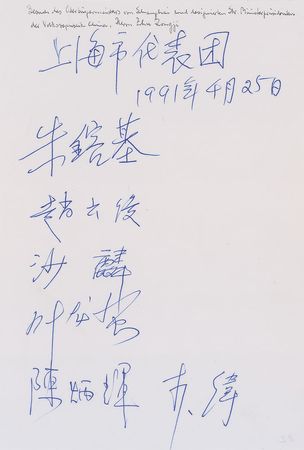 Besuch des Oberbürgermeisters von Shanghai und designierten Stv. Ministerpräsidenten
der Volksrepublik China, Herrn Zhu Rongji
上海市代表团
1991年4月25日
朱鎔基
赵云俊
沙麟
叶
陳炳輝